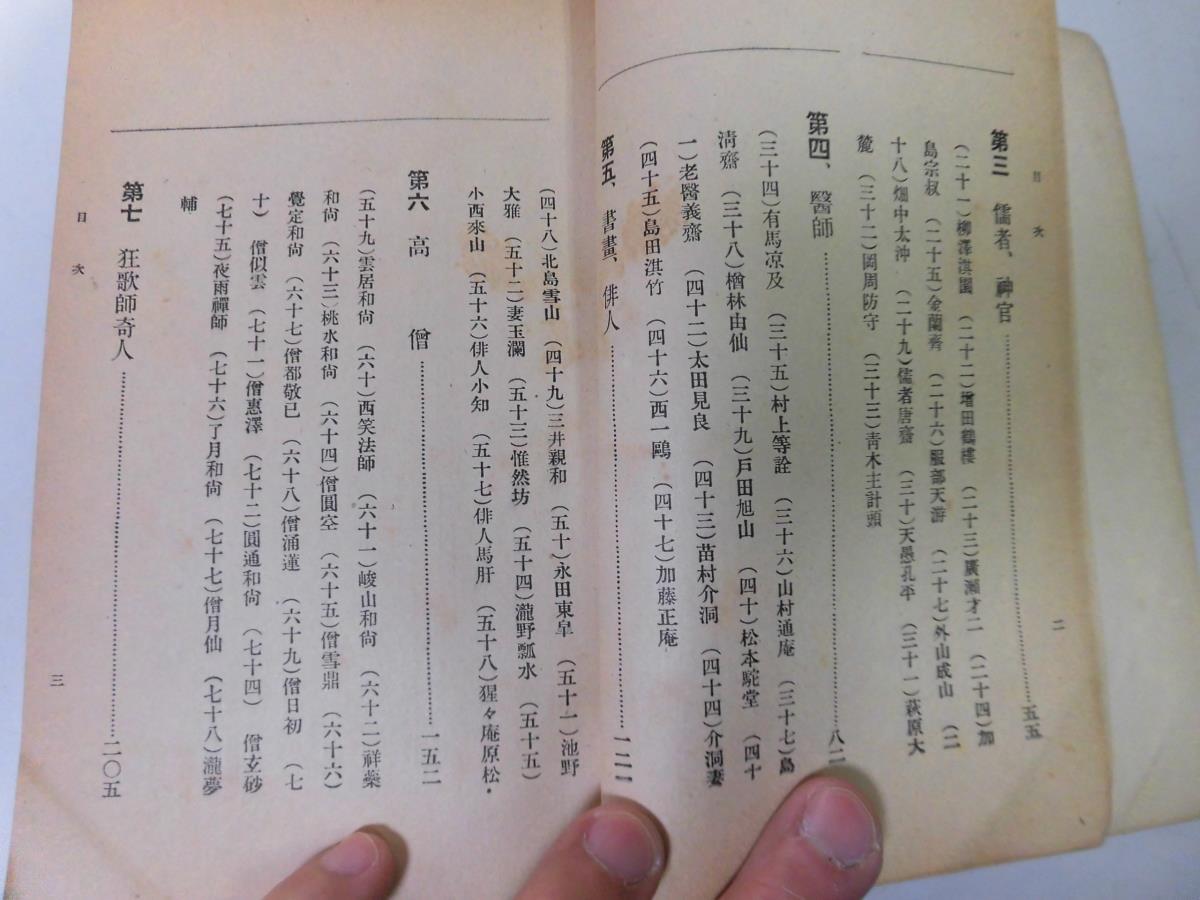 目次
二
第三 儒者、神官……五五
(二十一)柳澤淇園 (二十二)增田鶴樓 (二十三)廣瀬才二 (二十四)加
島宗叔 (二十五)金蘭齋 (二十六)服部天游 (二十七)外山成山 (二
十八)畑中太沖 (二十九)儒者唐齋 (三十)天愚孔平 (三十一)萩原大
麓 (三十二)岡周防守 (三十三)青木主計頭
第四、醫師……八二
(三十四)有馬凉及 (三十五)村上等詮 (三十六)山村通庵 (三十七)島
淸齋 (三十八)樹林由仙 (三十九)戸田旭山 (四十)松本駝堂 (四十
一)老醫義齋 (四十二)太田見良 (四十三)苗村介洞 (四十四)介洞妻
(四十五)島田淇竹 (四十六)西一鷗 (四十七)加藤正庵
第五、書畫、俳人……一二一
(四十八)北島雪山 (四十九)三井親和 (五十)永田東皐 (五十一)池野
大雅 (五十二)妻玉瀾 (五十三)惟然坊 (五十四)瀧野瓢水 (五十五)
小西來山 (五十六)俳人小知 (五十七)俳人馬肝 (五十八)猩々庵原松・
第六 高僧……一五二
(五十九)雲居和尙 (六十)西笑法師 (六十一)峻山和尙 (六十二)祥藥
和尙 (六十三)桃水和尙 (六十四)僧圓空 (六十五)僧雪鼎 (六十六)
覺定和尙 (六十七)僧都敬已 (六十八)僧涌蓮 (六十九)僧日初 (七
十) 僧似雲 (七十一)僧惠澤 (七十二)圓通和尙 (七十四) 僧玄砂
(七十五)夜雨禪師 (七十六)了月和尙 (七十七)僧月仙 (七十八)瀧夢
輔
第七 狂歌師奇人……二〇五
目次
三